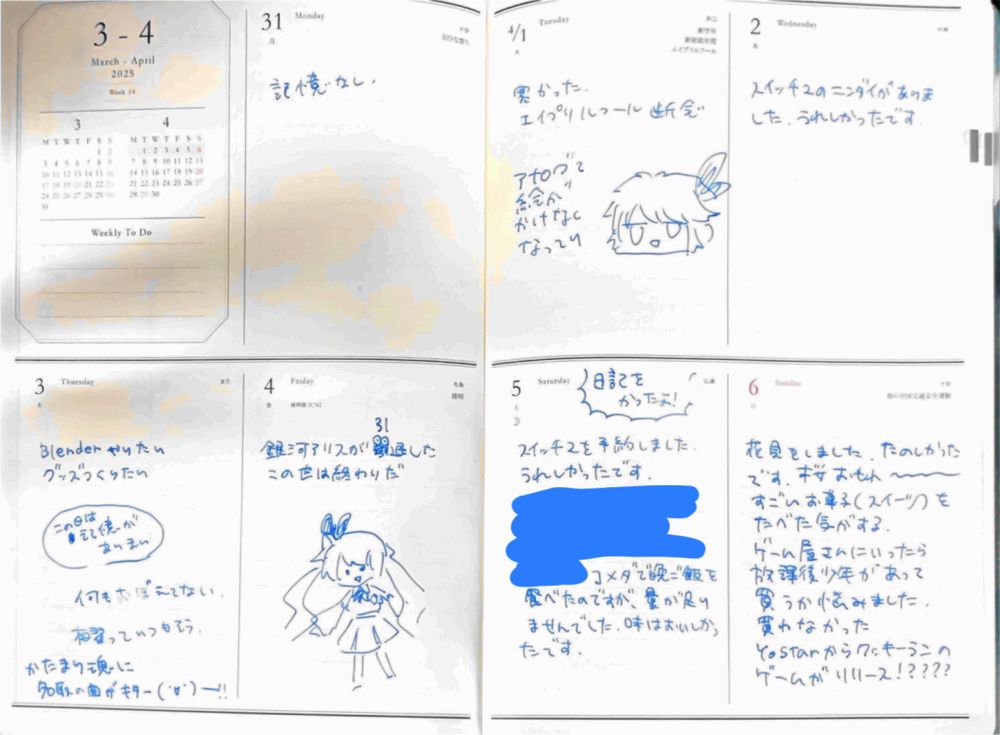 3 - 4
March - April
2025
Week 14
3
M T W T F S S
1 2
3 4 5 6 7 8 9
10 11 12 13 14 15 16
17 18 19 20 21 22 23
24 25 26 27 28 29 30
31
4
M T W T F S S
1 2 3 4 5 6
7 8 9 10 11 12 13
14 15 16 17 18 19 20
21 22 23 24 25 26 27
28 29 30
Weekly To Do
31 Monday
月
記憶なし.
4/1 Tuesday
火
新学年
新財政年度
エイプリルフール
寒かった.
エイプリルフール断念
アナログで
絵が
かけなく
なってり
2 Wednesday
水
スイッチ2のニンダイがありま
した.うれしかったです.
3 Thursday
木
Blenderやりたい
グッズつくりたい
この日は
記憶が
あいまい
何もおぼえてない.
って
かたまり魂に
の曲がキター(˙∀˙)ー!!
4 Friday
金 清明節[CN]
先負
清明
31
銀河アリスが過した
この世は終わりだ
5 Saturday
土
仏滅
日記を
かったよ!
スイッチ2を予約しました.
うれしかったです.
コメダで晩ご飯を
食べたのですが、量が足り
ませんでした.味はおいしかっ
たです.
6 Sunday
日
大安
春の全国交通安全運動
花見をしました.たのしかった
です.桜おもれ〜
すごいお菓子(スイーツ)を
たべた気がする.
ゲーム屋さんにいったら
放課後少年があって
買うか悩みました.
買わなかった
Yostarからワッキーうこの
ゲームがリリース!????